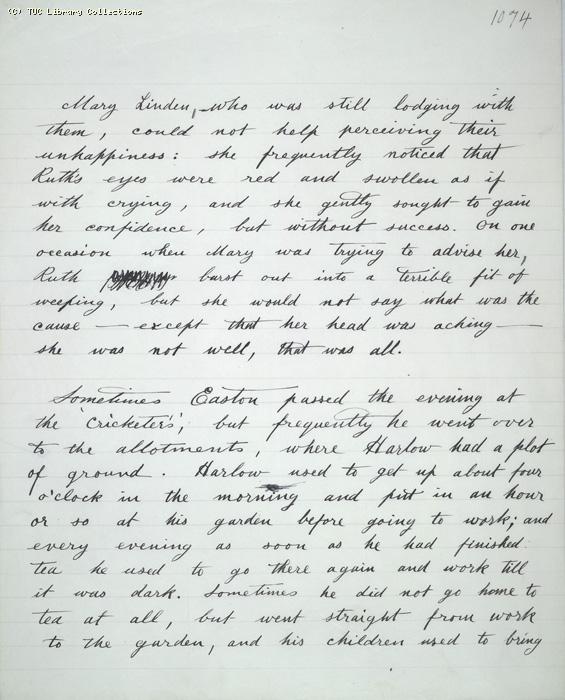 (C) TUC Library Collections
1074
Mary Linden, who was still lodging with
them, could not help perceiving their
unhappiness: she frequently noticed that
Ruth's eyes were red and swollen as if
with crying, and she gently sought to gain
her confidence, but without success. On one
occasion when Mary was trying to advise her,
Ruth burst out into a terrible fit of
weeping, but she would not say what was the
cause — except that her head was aching —
she was not well, that was all.
Sometimes Easton passed the evening at
the 'Cricketers', but frequently he went over
to the allotments, where Harlow had a plot
of ground. Harlow used to get up about four
o'clock in the morning and put in an hour
or so at his garden before going to work; and
every evening as soon as he had finished
tea he used to go there again and work till
it was dark. Sometimes he did not go home to
tea at all, but went straight from work
to the garden, and his children used to bring